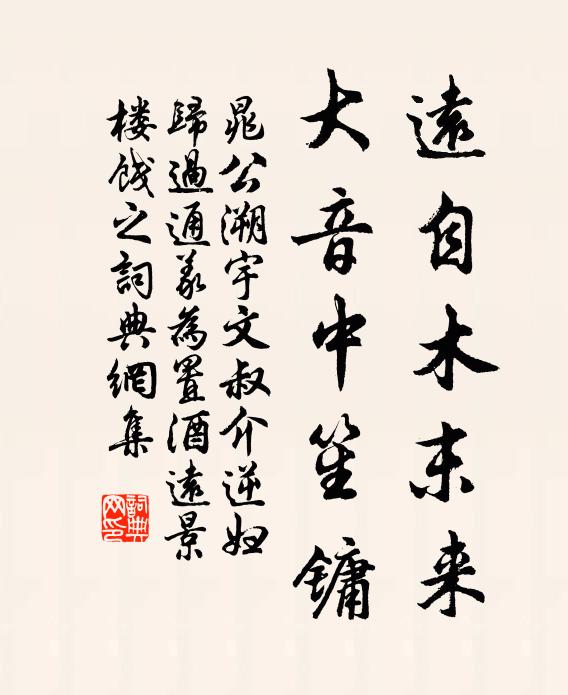 遠自木末来
大音中笙鏞
晁公溯宇文叔介逆妇
歸過通義為置酒遠景
楼餞之詞典網集
詞典
网印